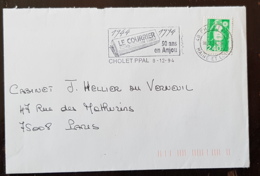 1944 1994
LE COURRIER
50 ans
en Anjou
CHOLET PPAL 8-12-94
CABINET J. HELLIER DU VERNEUIL
47 RUE DES MATHURINS
75008 PARIS